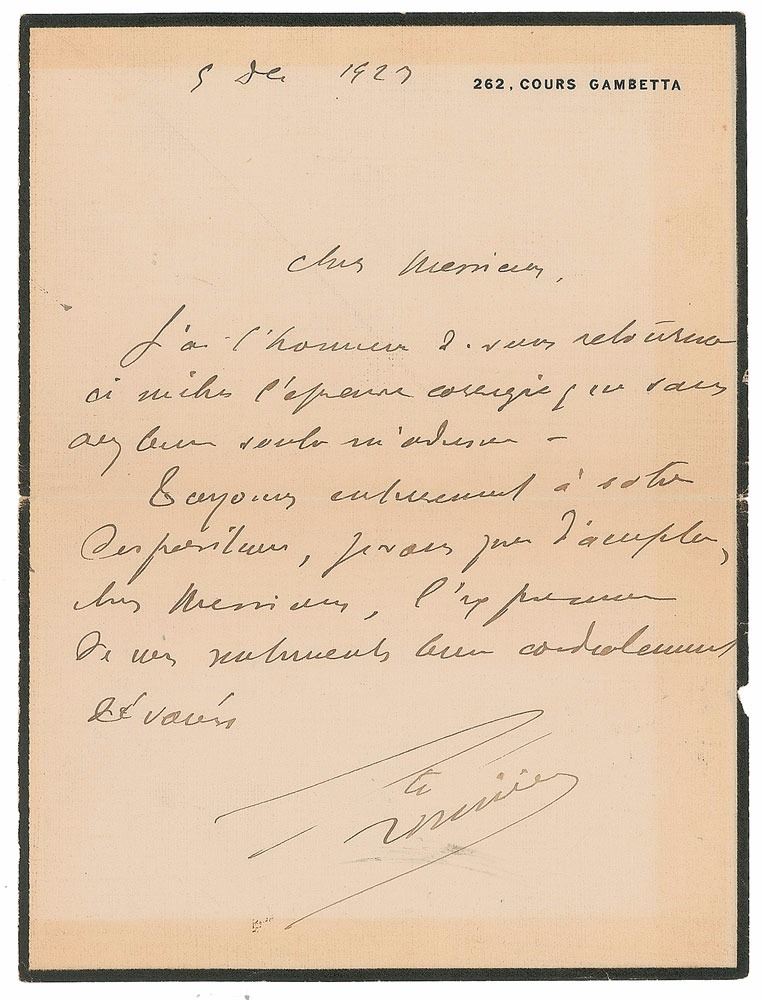 5 Dec 1923
262, COURS GAMBETTA
Chers Messieurs,
J'ai l'honneur de vous retourner
ci inclus l'épreuve corrigée que vous
avez bien voulu m'adresser –
Toujours entièrement à votre
disposition, je vous prie d'accepter,
chers Messieurs, l'expression
de mes sentiments bien cordialement
dévoués